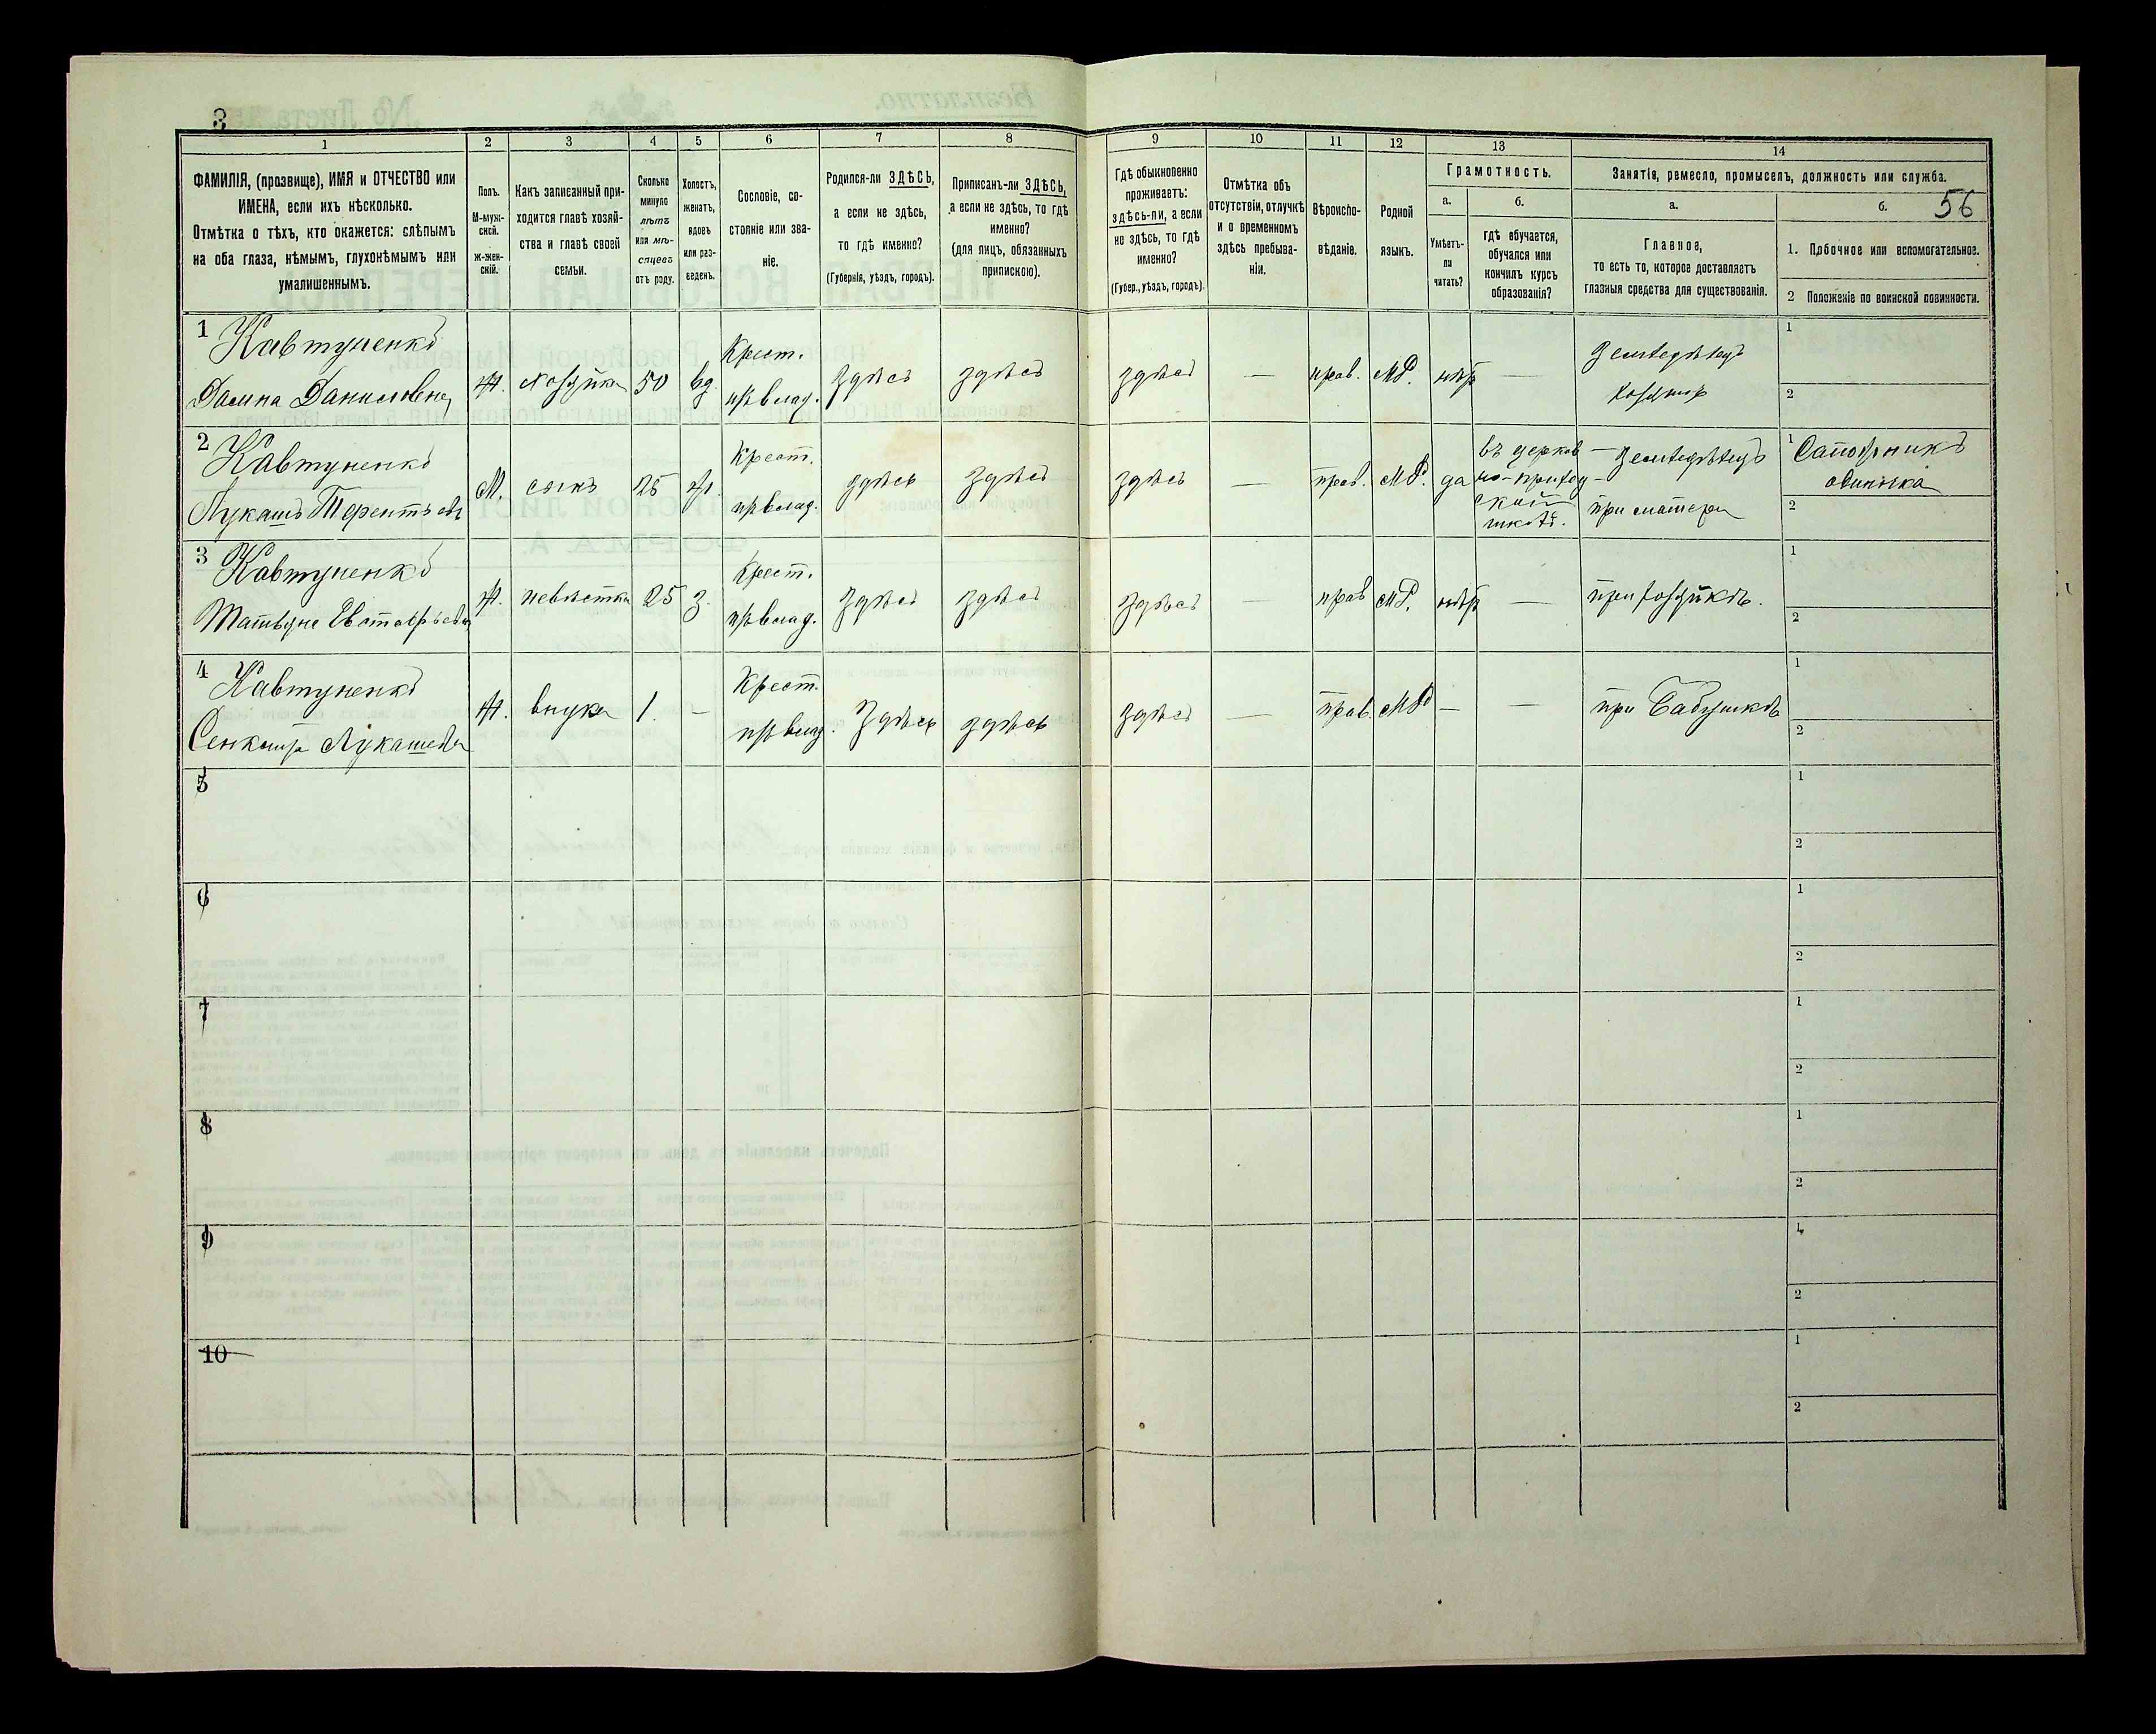 3
56
1
2
3
4
5
6
7
8
9
10
11
12
13
14
ФАМИЛІЯ, (прозвище), ИМЯ и ОТЧЕСТВО или
ИМЕНА, если ихъ нѣсколько.
Отмѣтка о тѣхъ, кто окажется: слѣпымъ
на оба глаза, нѣмымъ, глухонѣмымъ или
умалишеннымъ.
Полъ.
М-муж-
ской.
Ж-жен-
скій.
Какъ записанный при-
ходится главѣ хозяй-
ства и главѣ своей
семьи.
Сколько
минуло
лѣтъ
или мѣ-
сяцевъ
отъ роду.
Холостъ,
женатъ,
вдовъ
или раз-
веденъ.
Сословіе, со-
стояніе или зва-
ніе.
Родился-ли ЗДѢСЬ,
а если не здѣсь,
то гдѣ именно?
(Губернія, уѣздъ, городъ).
Приписанъ-ли ЗДѢСЬ,
а если не здѣсь, то гдѣ
именно?
(для лицъ, обязанныхъ
припискою).
Гдѣ обыкновенно
проживаетъ:
здѣсь-ли, а если
не здѣсь, то гдѣ
именно?
(Губер., уѣздъ, городъ).
Отмѣтка объ
отсутствіи, отлучкѣ
и о временномъ
здѣсь пребыва-
ніи.
Вѣроиспо-
вѣданіе.
Родной
языкъ.
Грамотность.
а.
Умѣетъ-
ли
читать?
б.
гдѣ обучается,
обучался или
кончилъ курсъ
образованія?
Занятія, ремесло, промыселъ, должность или служба.
а.
Главное,
то есть то, которое доставляетъ
главныя средства для существованія.
б.
1. Побочное или вспомогательное.
2 Положеніе по воинской повинности.
1 Кавтуненко
Даниловна
Ж. хозяйка 50 вд.
Крест.
здѣсь здѣсь здѣсь — прав. МР. нѣтъ —
Земледѣлецъ
1
2
2 Кавтуненко
Лукашъ Терентьевъ
М. сынъ 25 ж.
Крест.
здѣсь здѣсь здѣсь — прав. МР. да
въ церков
но-приход
ской
школѣ.
Земледѣлецъ
при матери
1 Сапожникъ
2
3 Кавтуненко
Ж. невѣстка 25 з.
Крест.
здѣсь здѣсь здѣсь — прав МР. нѣтъ —
при хозяйкѣ.
1
2
4 Кавтуненко
Лукашева
Ж. внука 1. —
Крест.
здѣсь здѣсь здѣсь — прав. МР — —
при Бабушкѣ
1
2
5
1
2
6
1
2
7
1
2
8
1
2
9
1
2
10
1
2